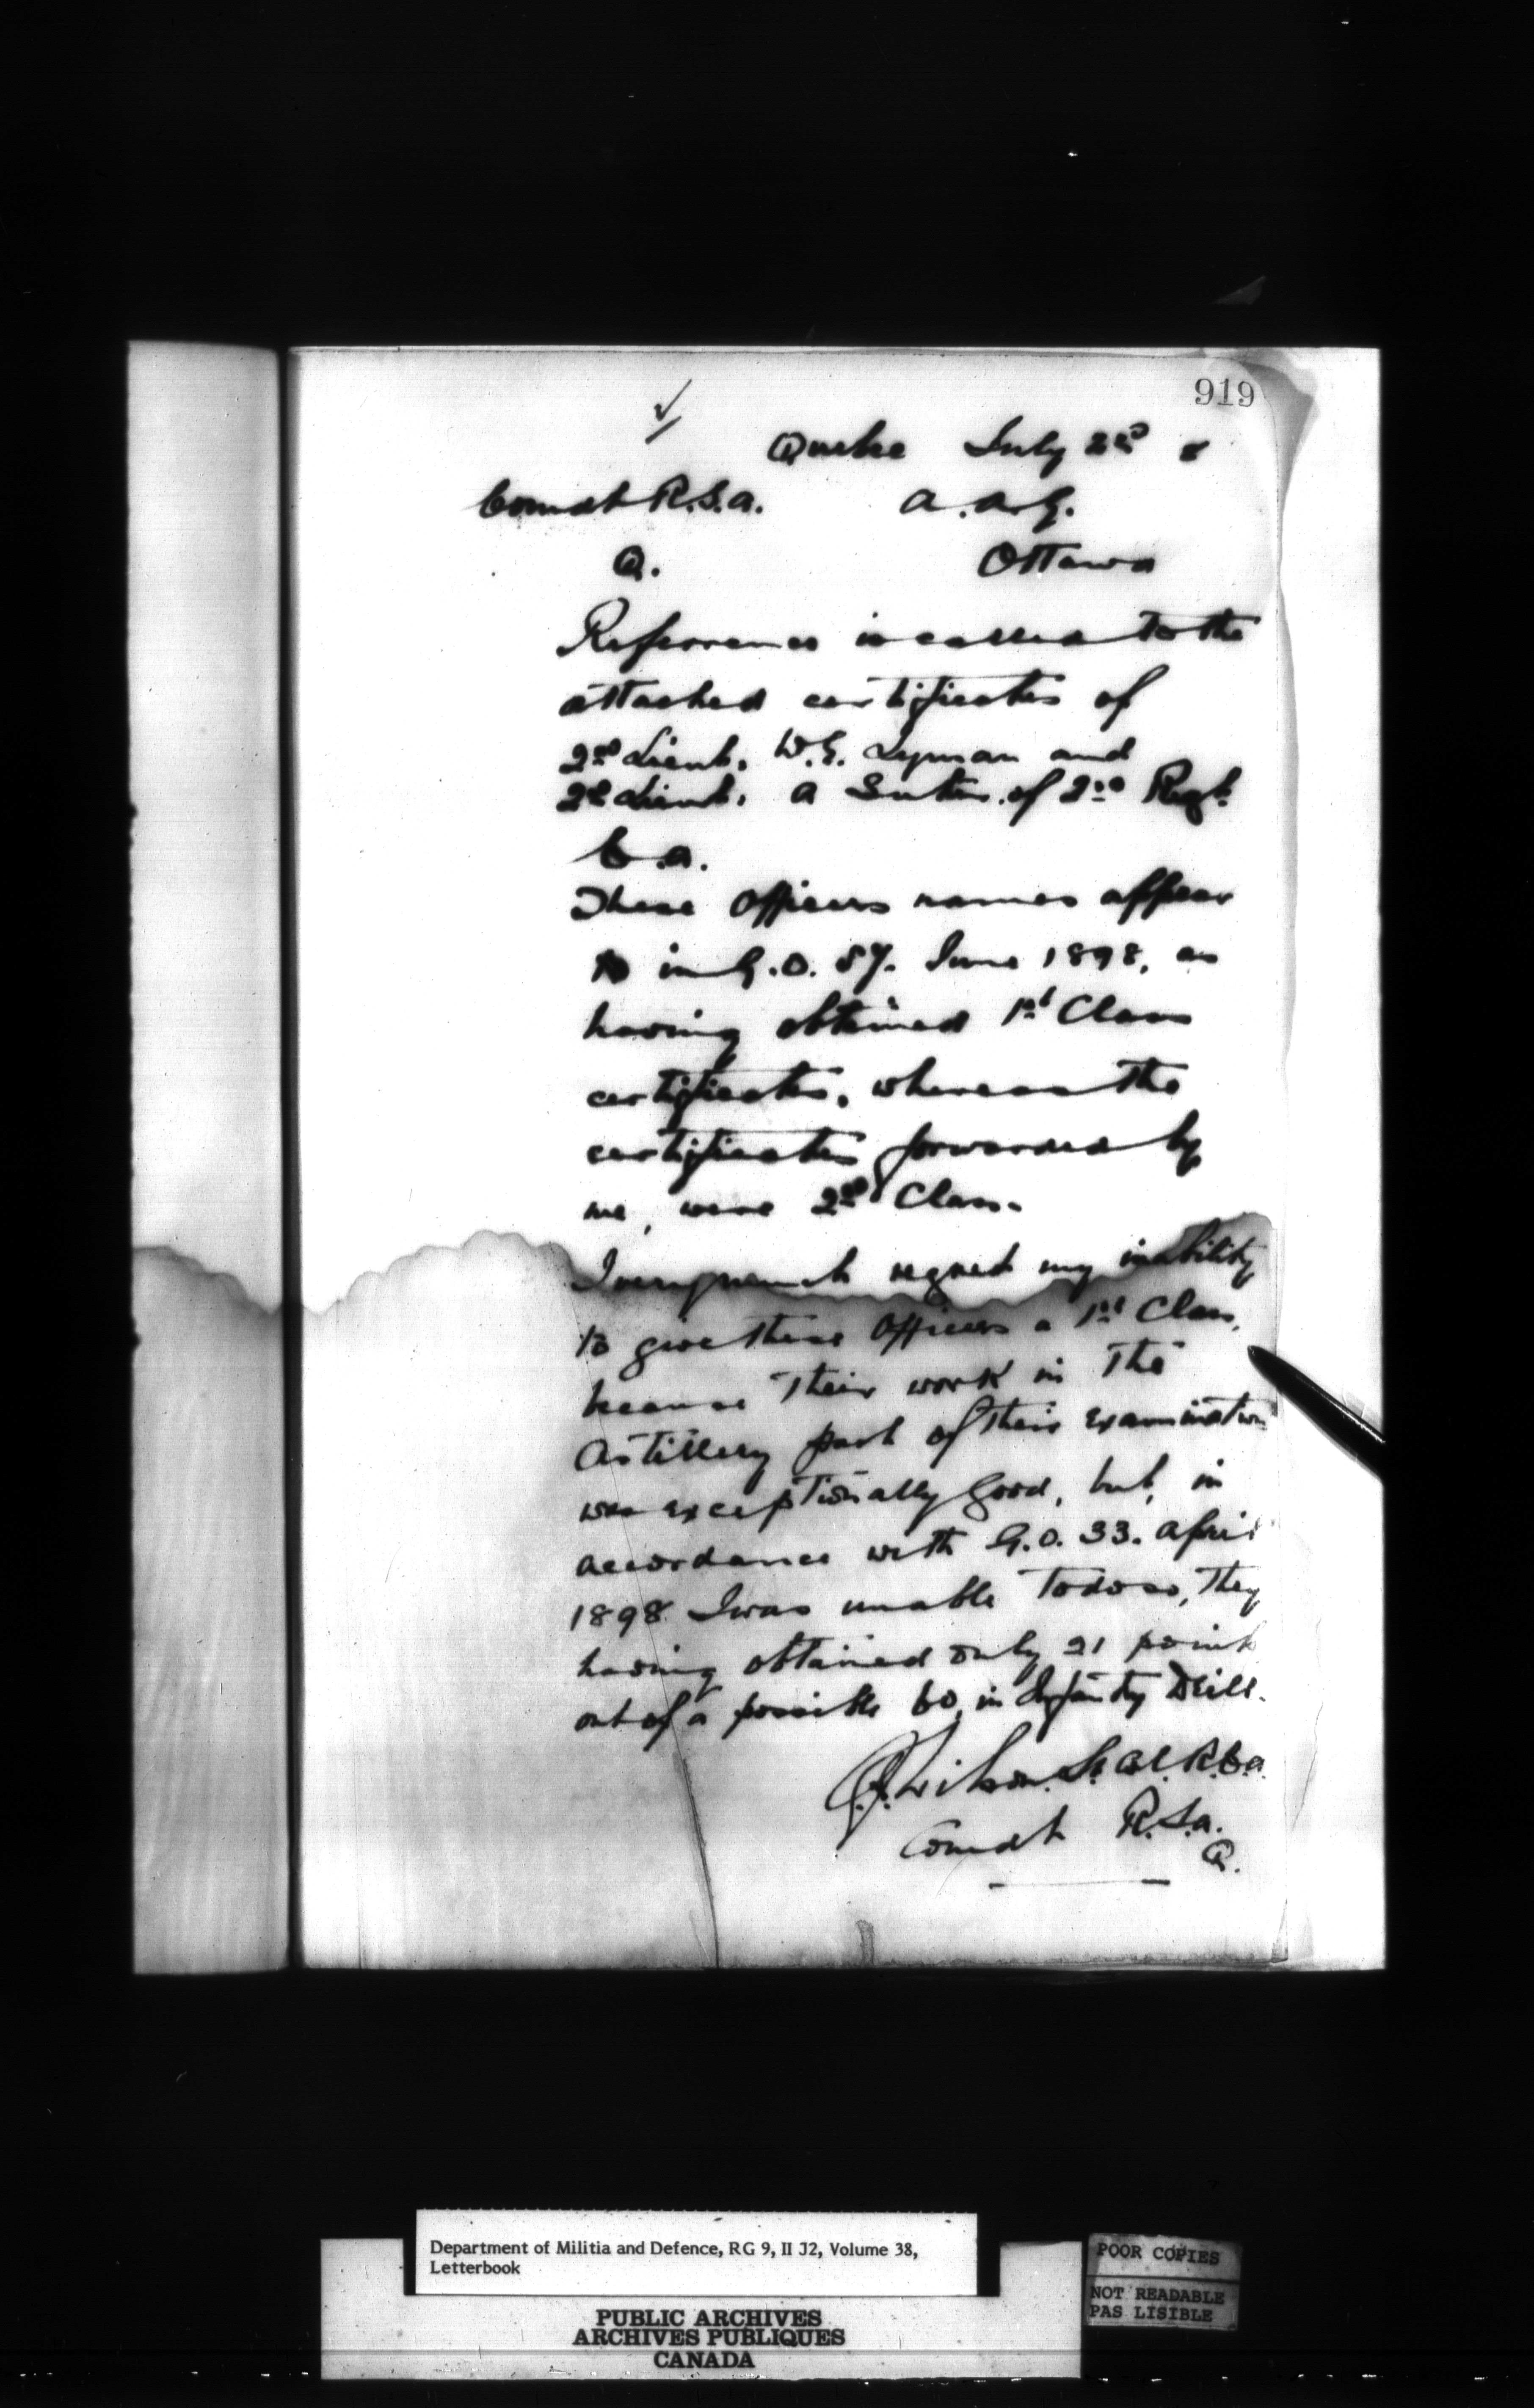 919
Quebec July 2nd 8
Comdt R.S.A. A.A.G.
Q. Ottawa
Reference is called to the
attached certificates of
2nd Lieut. W.G. Lyman and
2nd Lieut. A of 2nd Regt.
C.A.
These Officers names appear
in G.O. 57. June 1898, as
having obtained 1st Class
certificates, whereas the
certificates forwarded by
me, were 2nd Class.
I very much regret my inability
to give these Officers a 1st Class,
because their work in the
Artillery part of their examination
was exceptionally good, but, in
accordance with G.O. 33. April
1898 I was unable to do so, they
having obtained only 21 points
out of a possible 60, in Infantry Drill.
Wilson Lt Col. R.C.A.
Comdt R.S.A.
Q.
Department of Militia and Defence, RG 9, II J2, Volume 38,
Letterbook
PUBLIC ARCHIVES
ARCHIVES PUBLIQUES
CANADA
POOR COPIES
NOT READABLE
PAS LISIBLE